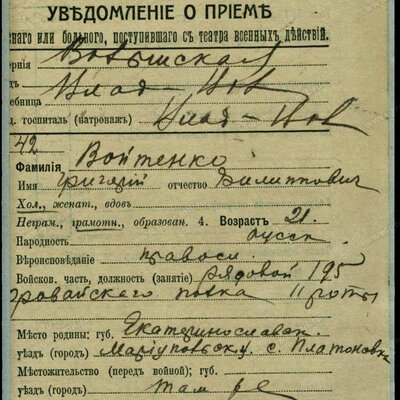 УВѢДОМЛЕНІЕ О ПРІЕМѢ
енаго или больного, поступившаго съ театра военныхъ дѣйствій.
ернія
ебница
д. госпиталь (патронаж)
42
Фамилія Войтенко
Имя Григорій отчество Филиппович
Хол., женат., вдов.
Неграм., грамотн., образован. 4. Возраст 21
Народность русск
Вѣроисповѣданіе правосл.
Войсков. часть, должность (занятіе) рядовой 195
Оровайского полка 11 роты
Мѣсто родины: губ. Екатеринославск.
уѣзд (город) Маріупольску с. Платоновка
Мѣстожительство (перед войной); губ.
уѣзд (город) там же